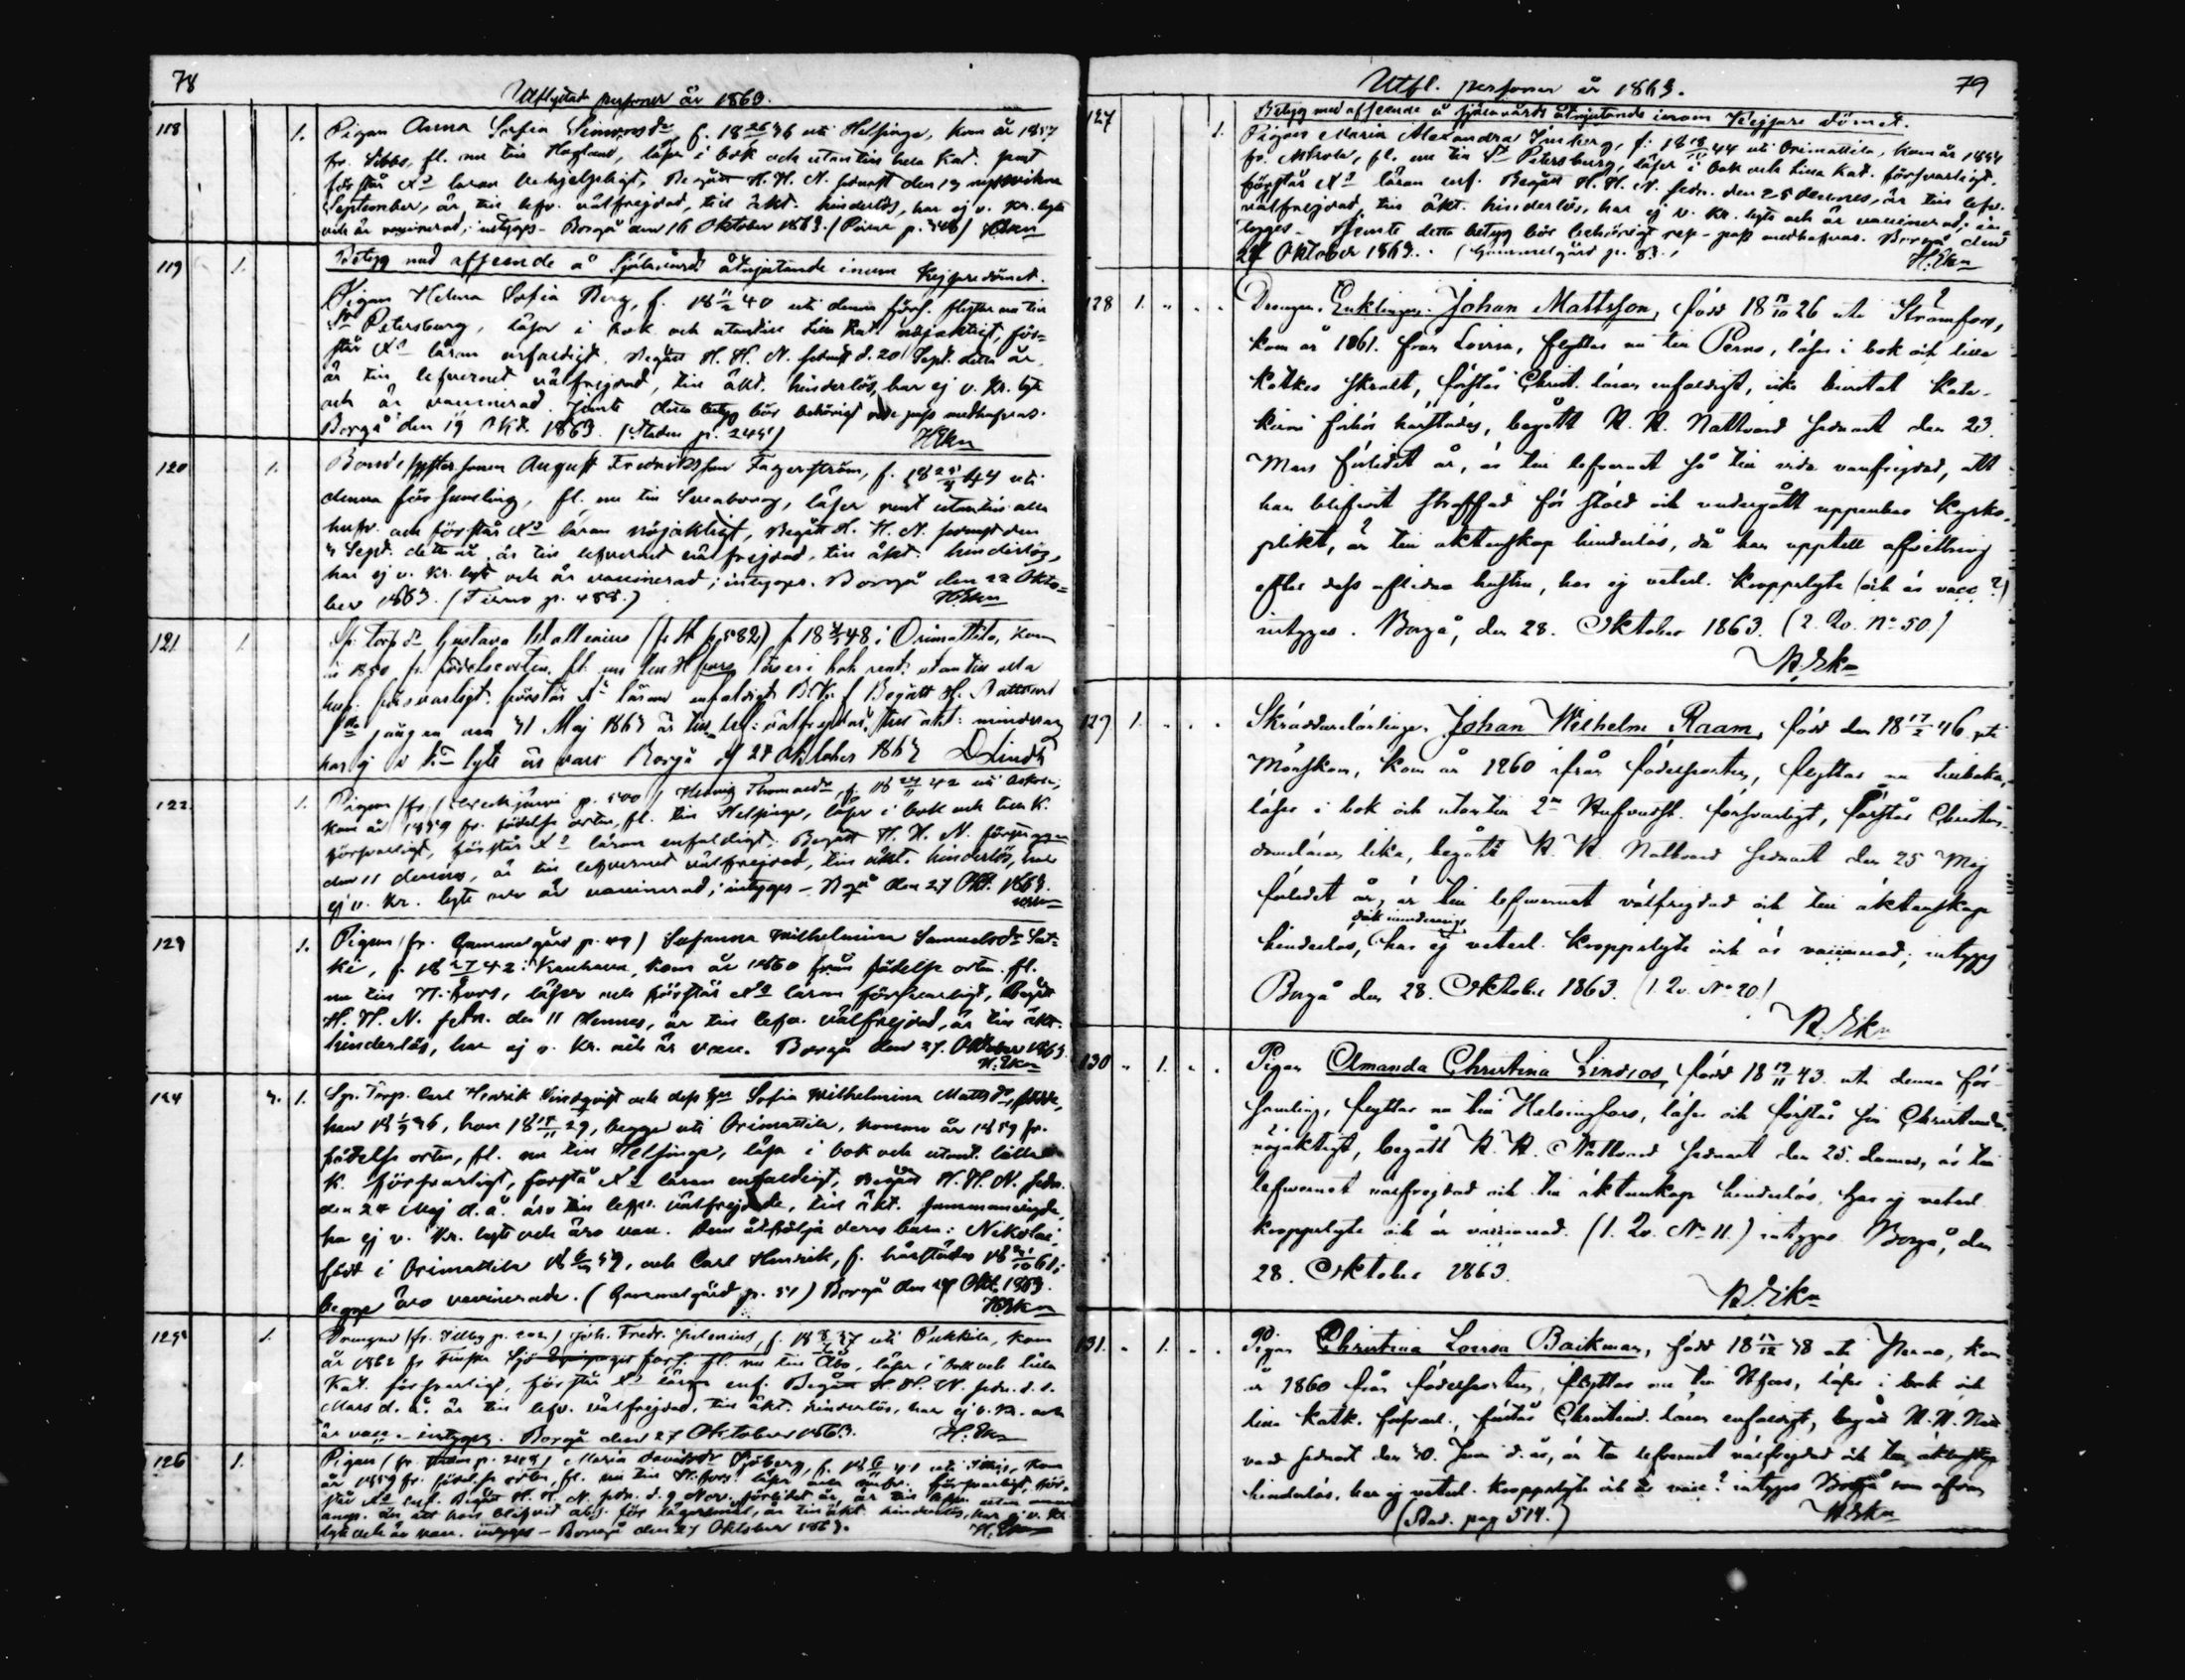 78
Utflyttade personer år 1863.
118 1. Pigan Anna Sofia Simonsdr, f. 18 26/ 36 uti Helsinge, kom år 1857
fr. Sibbo, fl. nu till Hogland, läser i bok och utantill hela Kat. samt
förstår Xs läran behjelpligt, Begått H. H. N. sednast den 13
September, är till lefv. välfrejdad, till äkt. hinderlös, har ej v. kr. lyte
och är vaccinerad; intygas – Borgå den 16 Oktober 1863.
119 1. Betyg med afseende å Själavård åtnjutande inom Kejsaredömet.
Pigan Helena Sofia Berg, f. 18 11/2 40 uti denna förs. flyttar nu till
St Petersburg, läser i bok och utantill Lilla Kat. nöjaktigt, för-
står Xs läran enfaldigt. Begått H. H. N. sednast d. 20 Sept. detta år,
är till lefvernet välfrejdad, till äkt. hinderlös, har ej v. kr. lyte
och är vaccinerad. Jemte detta betyg bör behörigt pass medhafvas.
Borgå den 19 Okt. 1863. (Staden p. 245) HEkn
120 1. Bondesystersonen August Fredriksson Fagerström, f. 18 25/ 44 uti
denna församling, fl. nu till Sveaborg, läser rent utantill alla
hufv. och förstår Xs läran nöjaktigt, Begått H. H. N. sednast den
Sept. detta år, är till lefvernet välfrejdad, till äkt. hinderlös,
har ej v. kr. lyte och är vaccinerad; intygas. Borgå den 22 Okto-
ber 1863. HEkn
121 1. Gustava Wallenius f. 18 48 i Orimattila, kom
år 1850 fr. födelseorten, fl. nu till Hfors läser i bok rent utantill alla
försvarligt förstår Xs läran enfaldigt Begått H. Nattvard
gången den 31 Maj 1863 är till lef: välfrejdad, till äkt: minderårig
har ej v. kr lyte är vacc Borgå d 27 Oktober 1863 Lindh
122 1. Pigan p. 500 Hedvig Thomasdr, f. 18 24/11 42 uti Askola,
kom år 1859 fr. födelse orten, fl. till Helsinge, läser i bok och lilla K.
försvarligt, förstår Xs läran enfaldigt. Begått H. H. N.
den 11 dennes, är till lefvernet välfrejdad, till äkt. hinderlös, har
ej v. kr. lyte och är vaccinerad; intygas – Bgå den 27 Okt. 1863.
123 1. Pigan (fr. Gammelgård p. 49) Susanna Wilhelmina Samuelsdr
f. 18 27/ 42 i Kauhava, kom år 1860 från födelse orten. fl.
nu till H:fors, läser och förstår Xs läran försvarligt, Begått
H. H. N. sedn. den 11 dennes, är till lefv. välfrejdad, är till äkt.
hinderlös, har ej v. kr. och är vacc. Borgå den 27. Oktober 1863.
H. Ekn
124 1. Carl Henrik Lindqvist och dess hu Sofia Wilhelmina Mattsdr, födde,
han 18 36, hon 18 29, begge uti Orimattila, kommo år 1859 fr.
födelse orten, fl. nu till Helsinge, läsa i bok och utant. lilla
K. försvarligt, förstå Xs läran enfaldigt, Begått H. H. N. sedn.
den 24 Maj d. å. äro till lefv. välfrejdade, till äkt. sammanvigde,
ha ej v. kr. lyte och äro vacc. Dem åtfölja deras barn: Nikolai,
född i Orimattila 18 59, och Carl Henrik, f. härstädes 18 61;
begge äro vaccinerade. (Gammelgård p. 51) Borgå den 27 Okt. 1863.
HEkn
125 1. Drengen (fr. Illby p. 202) Joh. Fredr. Julenius, f. 18 37 uti Pukkila, kom
år 1862 fl. nu till Åbo, läser i bok och lilla
Kat. försvarligt, förstår Xs läran enf. Begått H. H. N. sedn. d. 1.
Mars d. å. är till lefv. välfrejdad, till äkt. hinderlös, har ej v. kr. och
är vacc. – intygas. Borgå den 27 Oktober 1863. H. Ekn
126 1. Pigan Maria Davidsdr Sjöberg, f. 18 41 uti Ithis, kom
år 1859 fr. födelse orten, fl. nu till H:fors. läser försvarligt, för-
står Xs enf. Begått H. H. N. sedn. d. 9 Nov. förlidet år, är till lefv.
för lägersmål, är till äkt. hinderlös, har ej v. kr.
lyte och är vacc. intygas – Borgå den 27 Oktober 1863. H. Ekn
Utfl. personer år 1863. 79
127 1. Betyg med afseende å själavårds åtnjutande inom Kejsaredömet.
Pigan Maria Alexandra f. 18 18/ 44 uti Orimattila, kom år 1854
fr. fl. nu till St Petersburg, läser i bok och Lilla Kat. försvarligt,
förstår Xs läran enf. Begått H. H. N. sedn. den 25 dennes, är till lefv.
välfrejdad, till äkt. hinderlös, har ej v. kr. lyte och är vaccinerad; in-
tygas – Jemte detta betyg bör behörigt res-pass medhafvas. Borgå den
27 Oktober 1863. (Gammelgård p. 83.) H. Ekn
128 1. Drengen. Enklingen. Johan Mattsson, född 18 13/10 26 uti Strömfors,
kom år 1861. från Lovisa, flyttar nu till Perno, läser i bok och lilla
katkes skralt, förstår Christ. läran enfaldigt, icke bivistat Kate-
kismi förhör härstädes, begått H. H. Nattvard sednast den 23.
Mars förlidet år, är till lefvernet så till vida vanfrejdad, att
han blifvit straffad för stöld och undergått uppenbar kyrko-
plikt, är till äktenskap hinderlös, då han upptett afvittring
efter dess aflidna hustru, har ej veterl. kroppslyte (och är vacc?)
intygas. Borgå, den 28. Oktober 1863. (2. Qv. No 50)
H. Ekn
129 1. Skräddarelärlingen. Johan Wilhelm Raam, född den 18 17/2 46 uti
Mörskom, kom år 1860 ifrån födelseorten, flyttar nu tillbaka,
läser i bok och utantill 2ne Hufvudst. försvarligt, förstår Christen-
domsläran lika, begått H. H. Nattvard sednast den 25 Maj
förlidet år, är till lefvernet välfrejdad och till äktenskap
hinderlös, (dock minderårig) har ej veterl. kroppslyte och är vaccinerad; intygas
Borgå den 28. Oktober 1863. (1. Qv. No 20)
H. Ekn
130 1. Pigan Amanda Christina Lindroos, född 18 19/11 43 uti denna för-
samling, flyttar nu till Helsingfors, läser och förstår sin Christendom
nöjaktigt, begått H. H. Nattvard sednast den 25. dennes, är till
lefvernet välfrejdad och till äktenskap hinderlös. har ej veterl.
kroppslyte och är vaccinerad. (1. Qv. No 11.) intygas Borgå, den
28. Oktober 1863.
H. Ekn
131. 1. Pigan Christina Lovisa Backman, född 18 /12 38 uti Perno, kom
år 1860 från födelseorten, flyttar nu till Hfors, läser i bok och
lilla katk. försvarl., förstår Christend. läran enfaldigt, begått H. H. Natt-
vard sednast den 30. Juni d. år, är till lefvernet välfrejdad och till äktenskap
hinderlös. har ej veterl. kroppslyte och är vacc? intygas Borgå som ofvan
(Stad. pag 514.) H Ekn